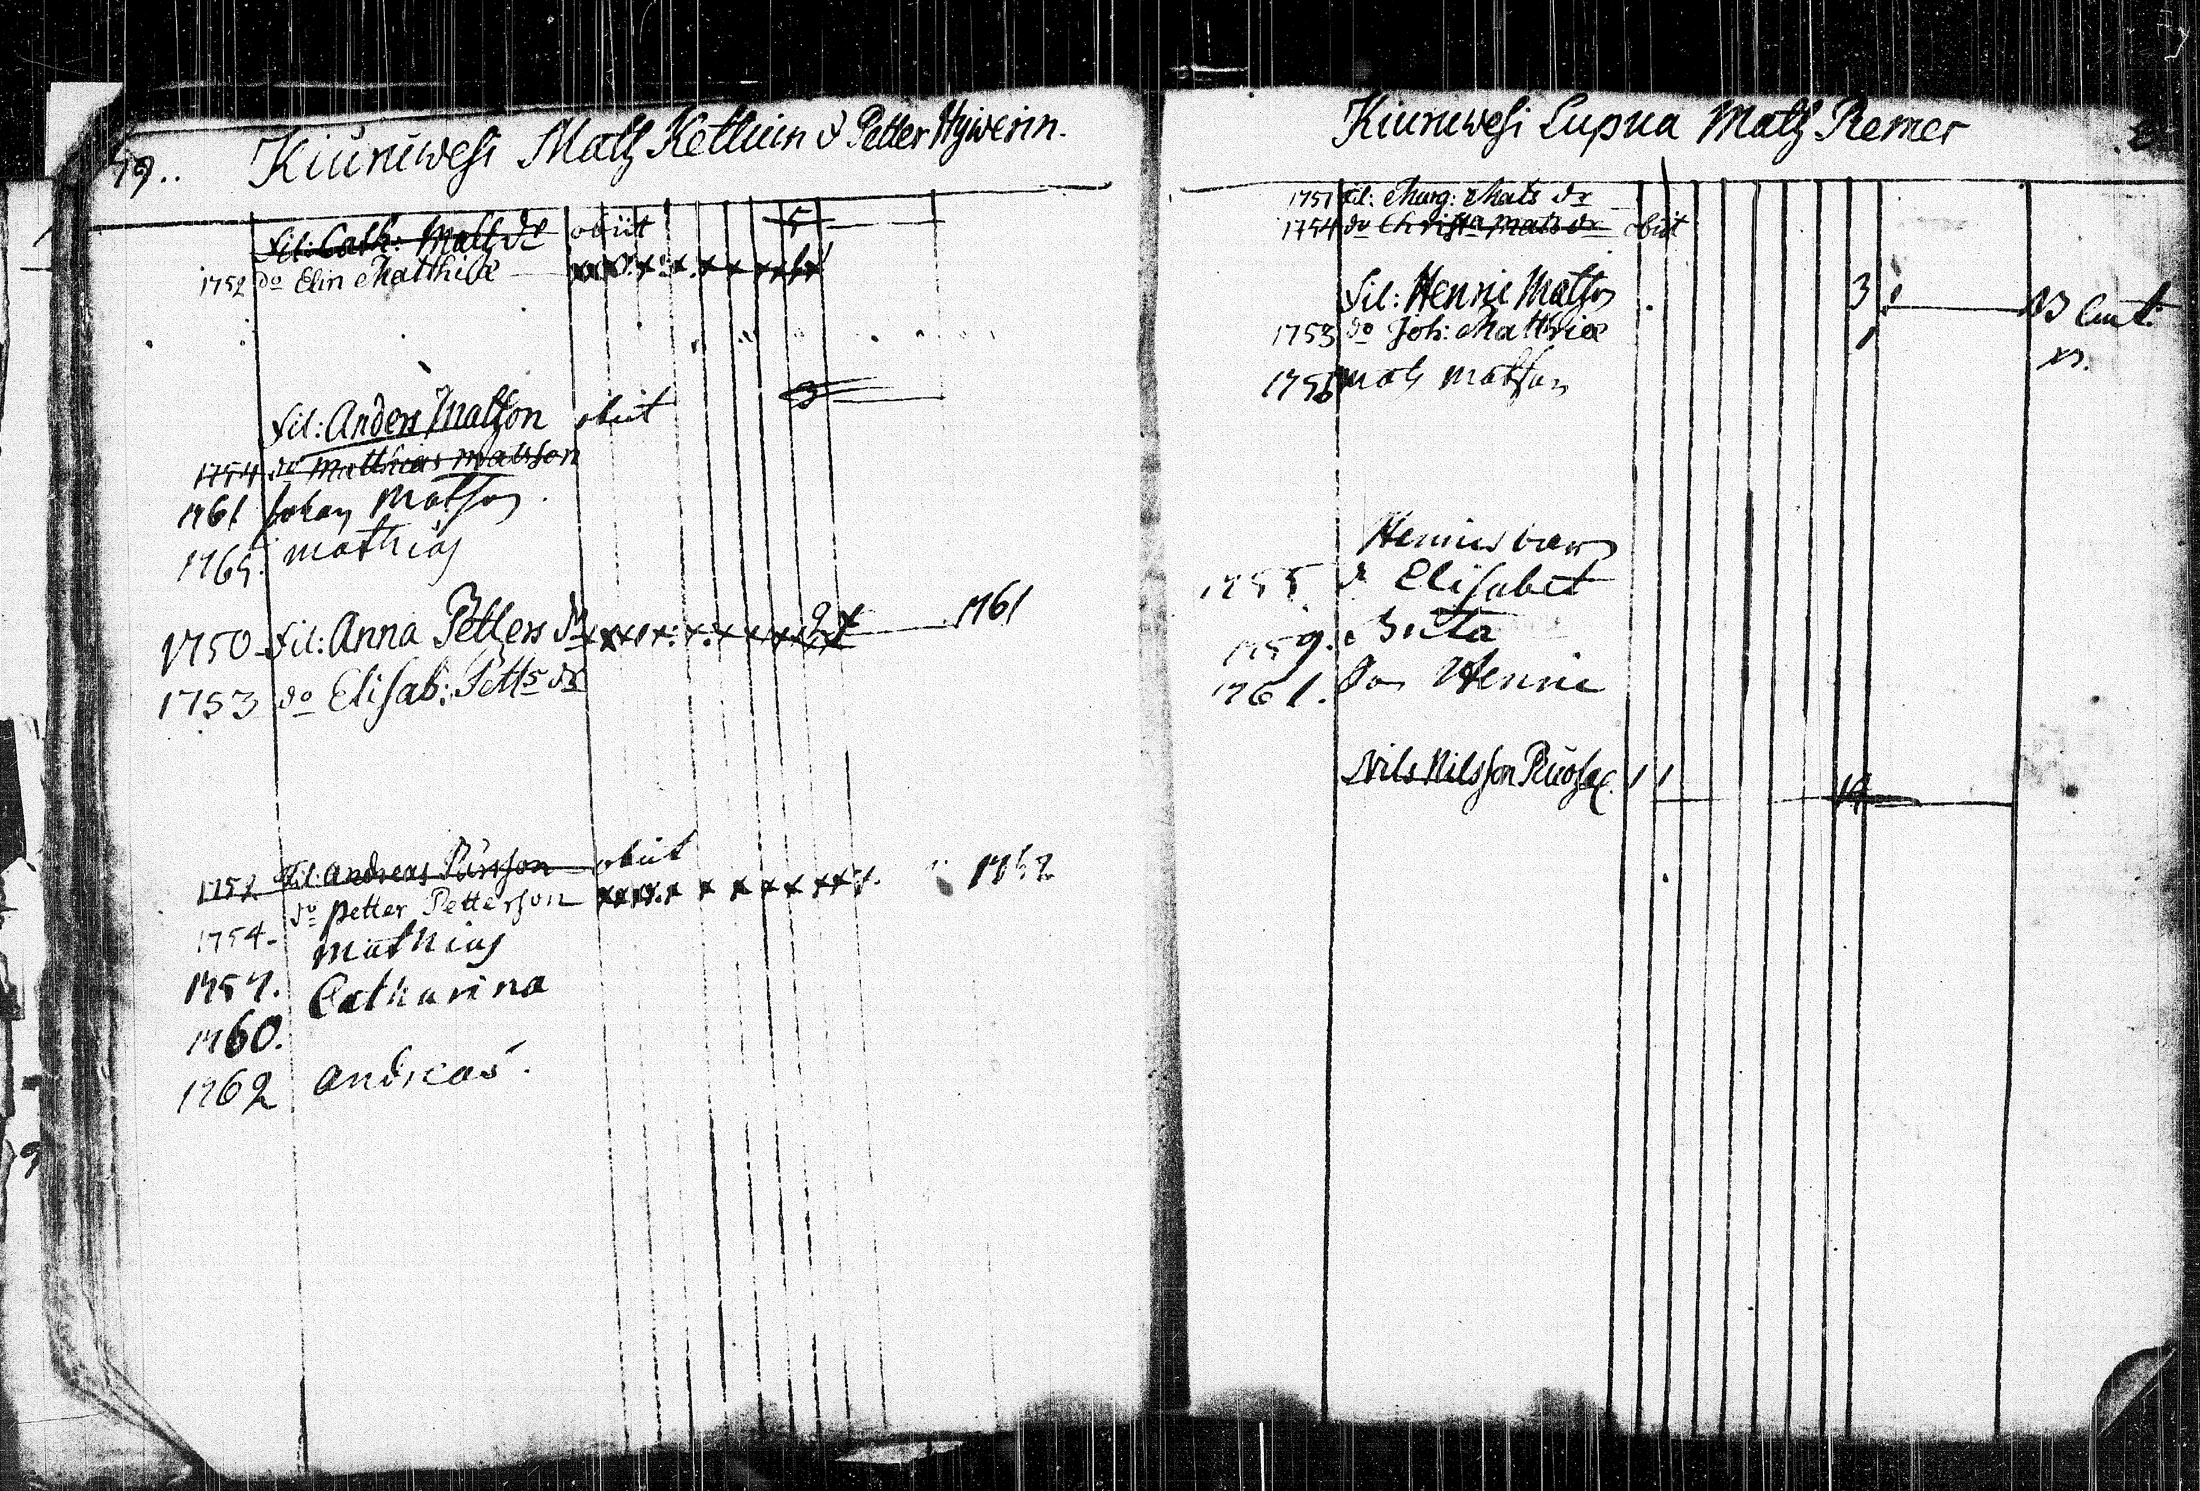 59.. Kiuruwesi Matz Kettuin & Petter Hywerin.
fil: Cath: Matz dr obiit 5
1752 do Elin Matthiæ
fil: Anders Matzon obiit 3
1754 do Matthias Matsson
1761 Johan Matsson
1765. Mathias
1750 fil: Anna Petters dr 2 1761
1753 do Elisab: Petts dr
1752 fil: Andreas obiit
1754- do Petter Petterson 1752
1757. Mathias
1760. Catharina
1762 Andreas.
Kiuruwesi Lupua Matz Remes
1751 fil: Marg: Mats dr
1754 do Christa Mats dr obiit
fil: Henric Matson 3
1753 do Joh: Matthiæ
Mats Matsson
Henrics barn
1755 dr Elisabet
1759. Brita
1761. Son Henric
Nils Nilsson 1 1